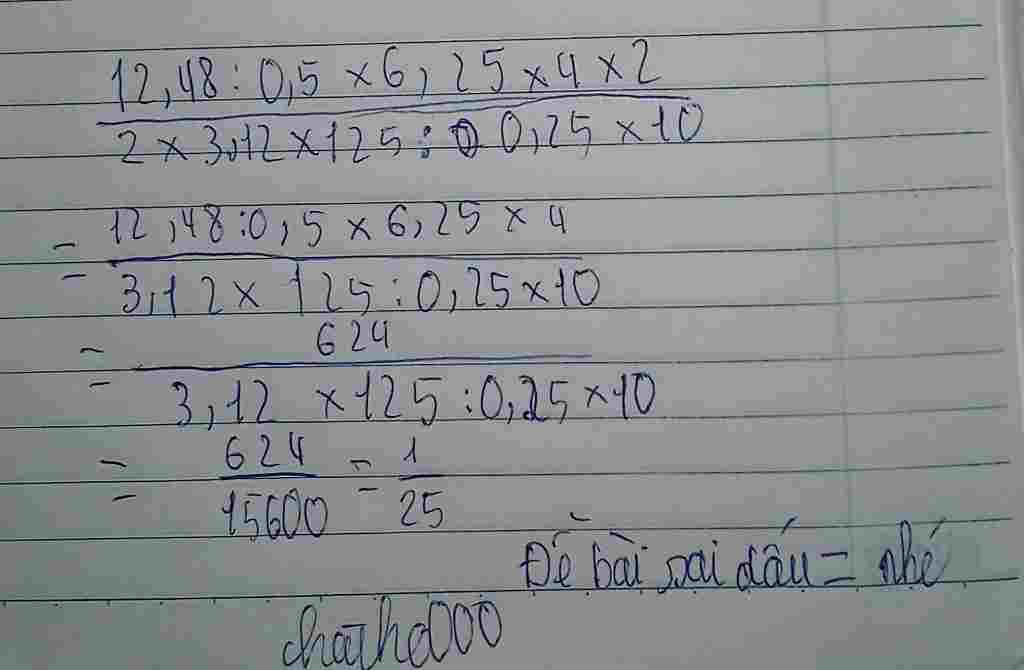 12,48 : 0,5 × 6,25 × 4 × 2
2 × 3,12 × 125 : 0,25 × 10
= 12,48 : 0,5 × 6,25 × 4
3,12 × 125 : 0,25 × 10
= 624
3,12 × 125 : 0,25 × 10
= 624 = 1
15600 25
Đề bài sai dấu = nhé